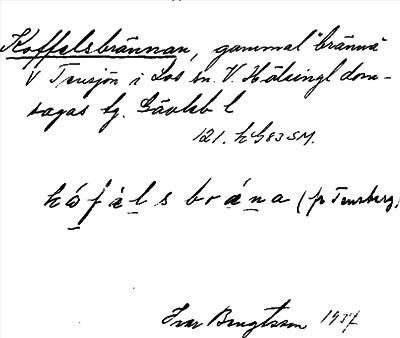 Koffelsbrännan, gammal brännä
V Tensjön i Los sn. V. Hälsingl dom-
sagas tg. Gävleb l
121. h G 83 SM.
kåfalsbrána (fr Tensberg)
Ivar Bengtsson 1937